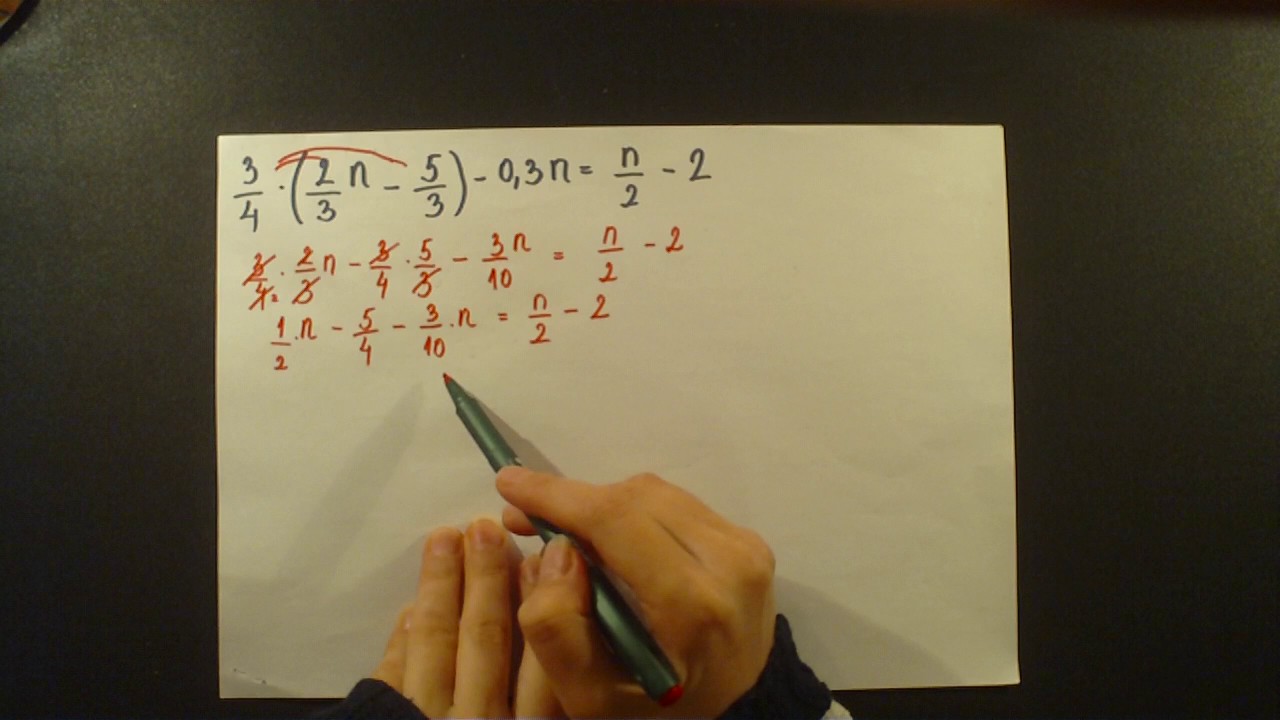 3/4 · (2/3 n - 5/3) - 0,3n = n/2 - 2
3/4 · 2/3 n - 3/4 · 5/3 - 3/10 n = n/2 - 2
1/2 · n - 5/4 - 3/10 · n = n/2 - 2